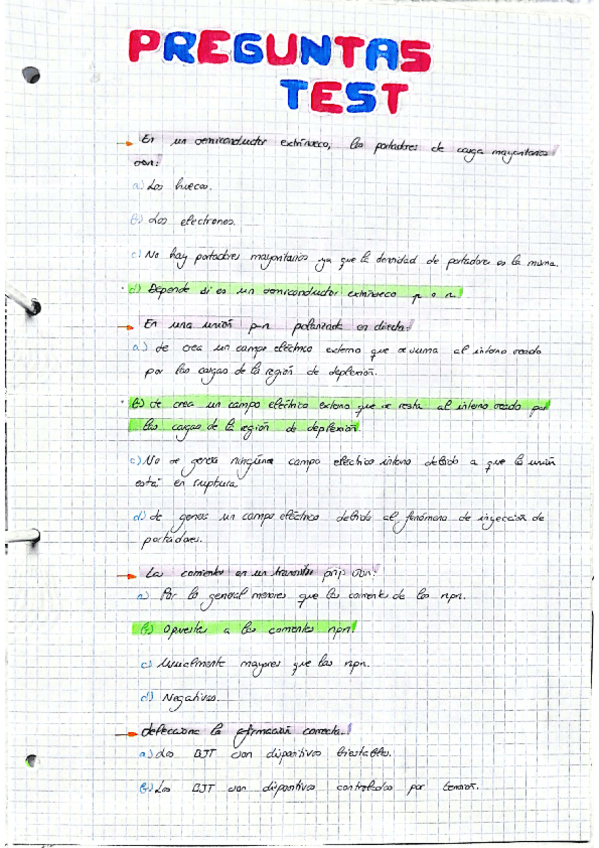 PREGUNTAS
TEST
→ En un semiconductor extrínseco, los portadores de carga mayoritarios
son:
a) Los huecos.
b) Los electrones.
c) No hay portadores mayoritarios ya que la densidad de portadores es la misma.
d) Depende si es un semiconductor extrínseco p o n.
→ En una unión p-n polarizada en directa:
a) Se crea un campo eléctrico externo que se suma al interno creado
por las cargas de la región de deplexión.
b) Se crea un campo eléctrico externo que se resta al interno creado por
las cargas de la región de deplexión.
c) No se genera ningúna campo eléctrico interno debido a que la unión
está en ruptura.
d) Se genera un campo eléctrico debido al fenómeno de inyección de
portadores.
→ La corriente en un transistor pnp son:
a) Por lo general menores que las corrientes de los npn.
b) Opuestas a las corrientes npn.
c) Usualmente mayores que las npn.
d) Negativas.
→ Selecciona la afirmación correcta.
a) Los BJT son dispositivos biestables.
b) Los BJT son dispositivos controlados por tensión.